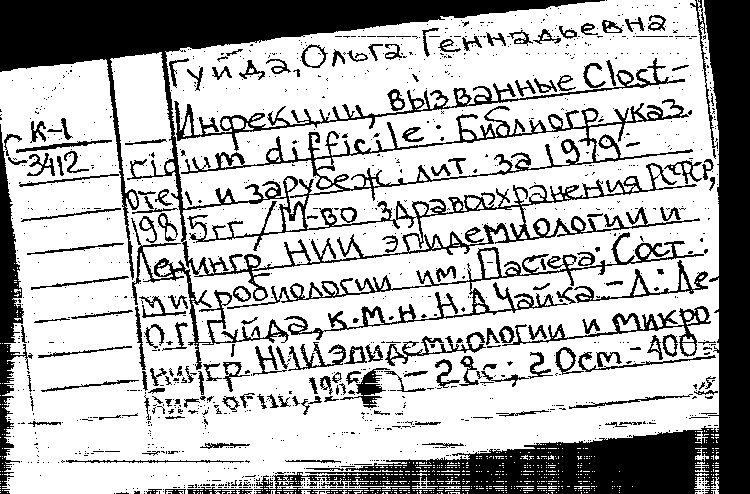 Гуйда, Ольга Геннадьевна.
Инфекции, вызванные Clost-
К-1
С 3412
ridium difficile: Библиогр. указ.
отеч. и зарубеж. лит. за 1979-
1985 гг. / М-во здравоохранения РСФСР,
Ленингр. НИИ эпидемиологии и
микробиологии им. Пастера; Сост.:
О.Г. Гуйда, к.м.н. Н.А Чайка. - Л.: Ле-
нингр. НИИ эпидемиологии и микро-
биологии, 1985 - 28с.; 20см. - 400